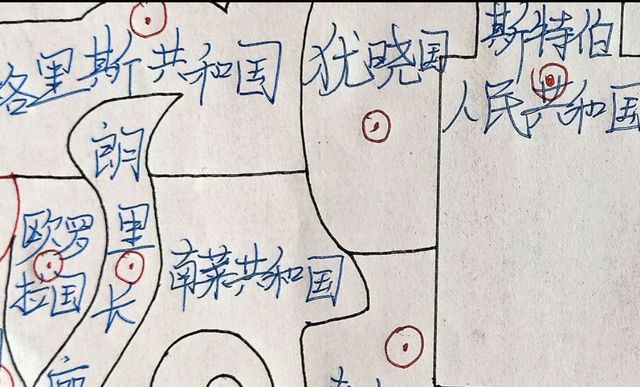 格里斯共和国
犹晓国
斯特伯
人民共和国
朗里长
欧罗
拉国
南莱共和国